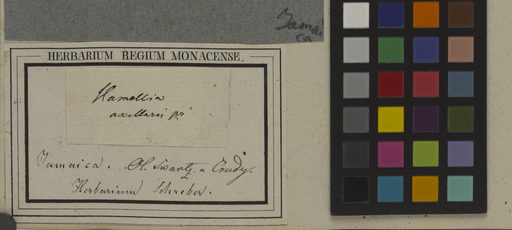 Jamai
ca
HERBARIUM REGIUM MONACENSE.
Hamellia
axillaris
Jamaica. Ol. Swartz.
Herbarium Schreber.